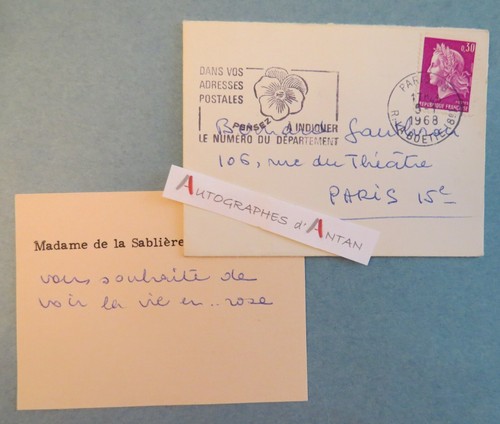 DANS VOS
ADRESSES
POSTALES
PENSEZ A INDIQUER
LE NUMÉRO DU DÉPARTEMENT
0,30
REPUBLIQUE FRANÇAISE
PARIS
1968
106, rue du Théâtre
PARIS 15e
AUTOGRAPHES d'ANTAN
Madame de la Sablière
vous souhaite de
voir la vie en.. rose